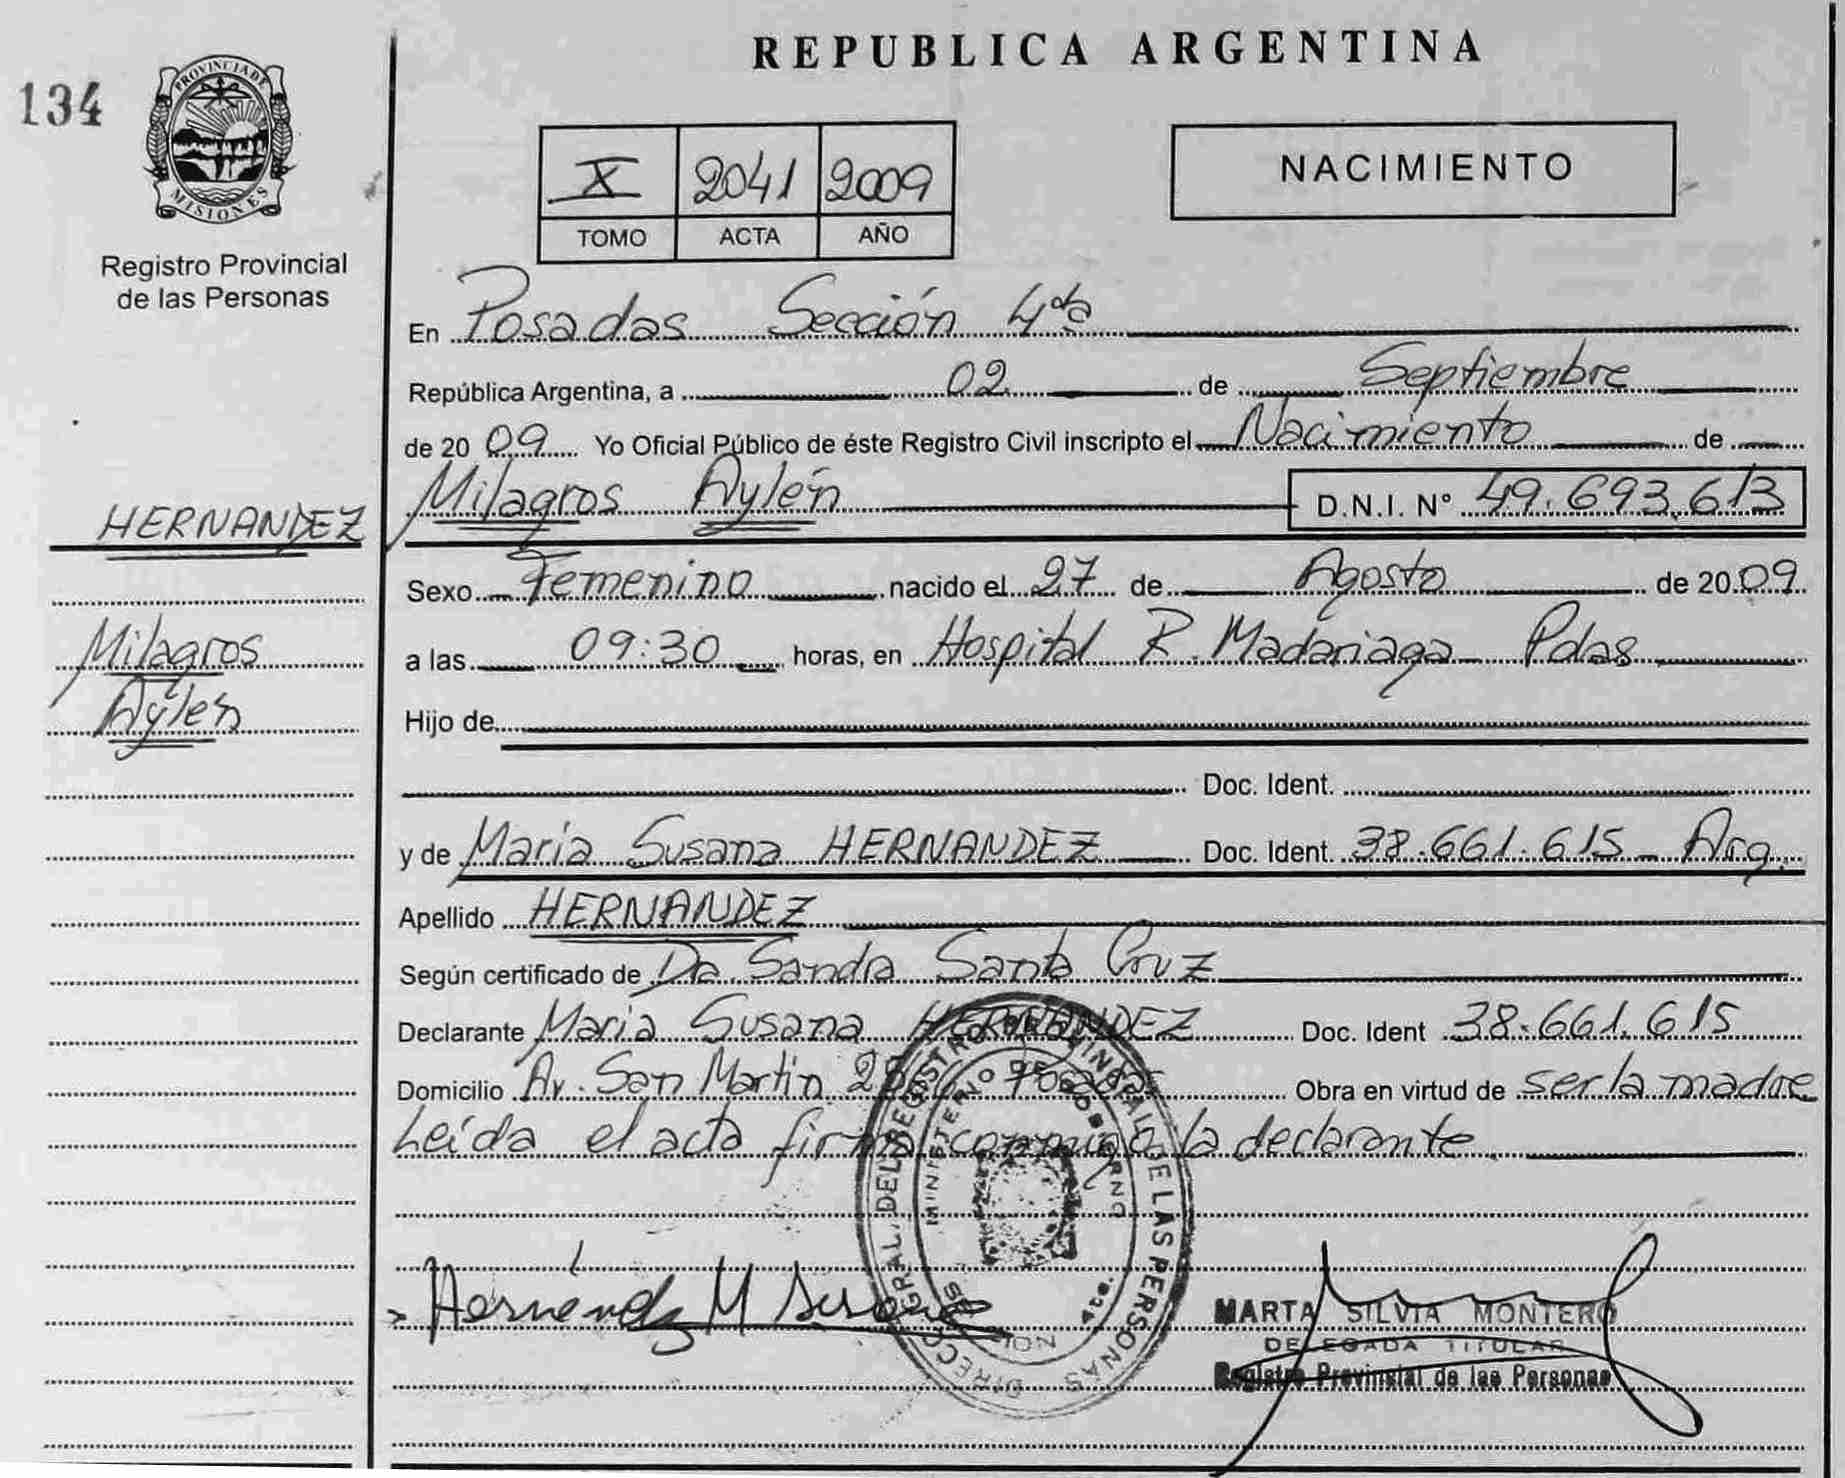 REPUBLICA ARGENTINA
134
PROVINCIA DE
MISIONES
Registro Provincial
de las Personas
X 2041 2009
TOMO ACTA AÑO
NACIMIENTO
En Posadas Sección 4ta
República Argentina, a 02 de Septiembre
de 2009 Yo Oficial Público de éste Registro Civil inscripto el Nacimiento de
HERNANDEZ
Milagros Aylén D.N.I. N° 49.693.613
Sexo Femenino nacido el 27 de Agosto de 2009
Milagros
Aylén
a las 09:30 horas, en Hospital R. Madariaga Pdas
Hijo de
Doc. Ident.
y de María Susana HERNANDEZ Doc. Ident. 38.661.615 Arg.
Apellido HERNANDEZ
Según certificado de Dra Sandra Santa Cruz
Declarante María Susana HERNANDEZ Doc. Ident 38.661.615
Domicilio Av. San Martin Posadas Obra en virtud de ser la madre
Leída el acta firma conmigo la declarante
DIRECC. GRAL. DEL REGISTRO PROVINCIAL DE LAS PERSONAS
MINISTERIO DE GOBIERNO
4ta.
Hernández M Susana
MARTA SILVIA MONTERO
DELEGADA TITULAR
Registro Provincial de las Personas